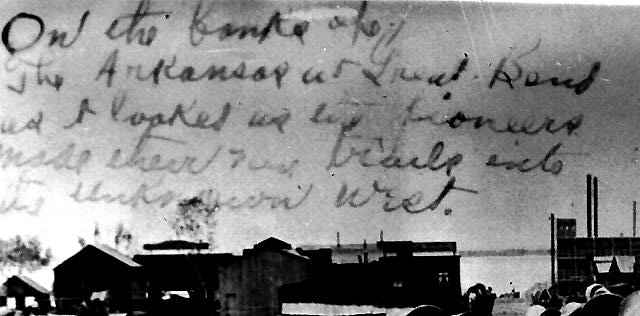 On the banks of
The Arkansas at Great Bend
as it looked as the pioneers
made their new trails into
the unknown West.